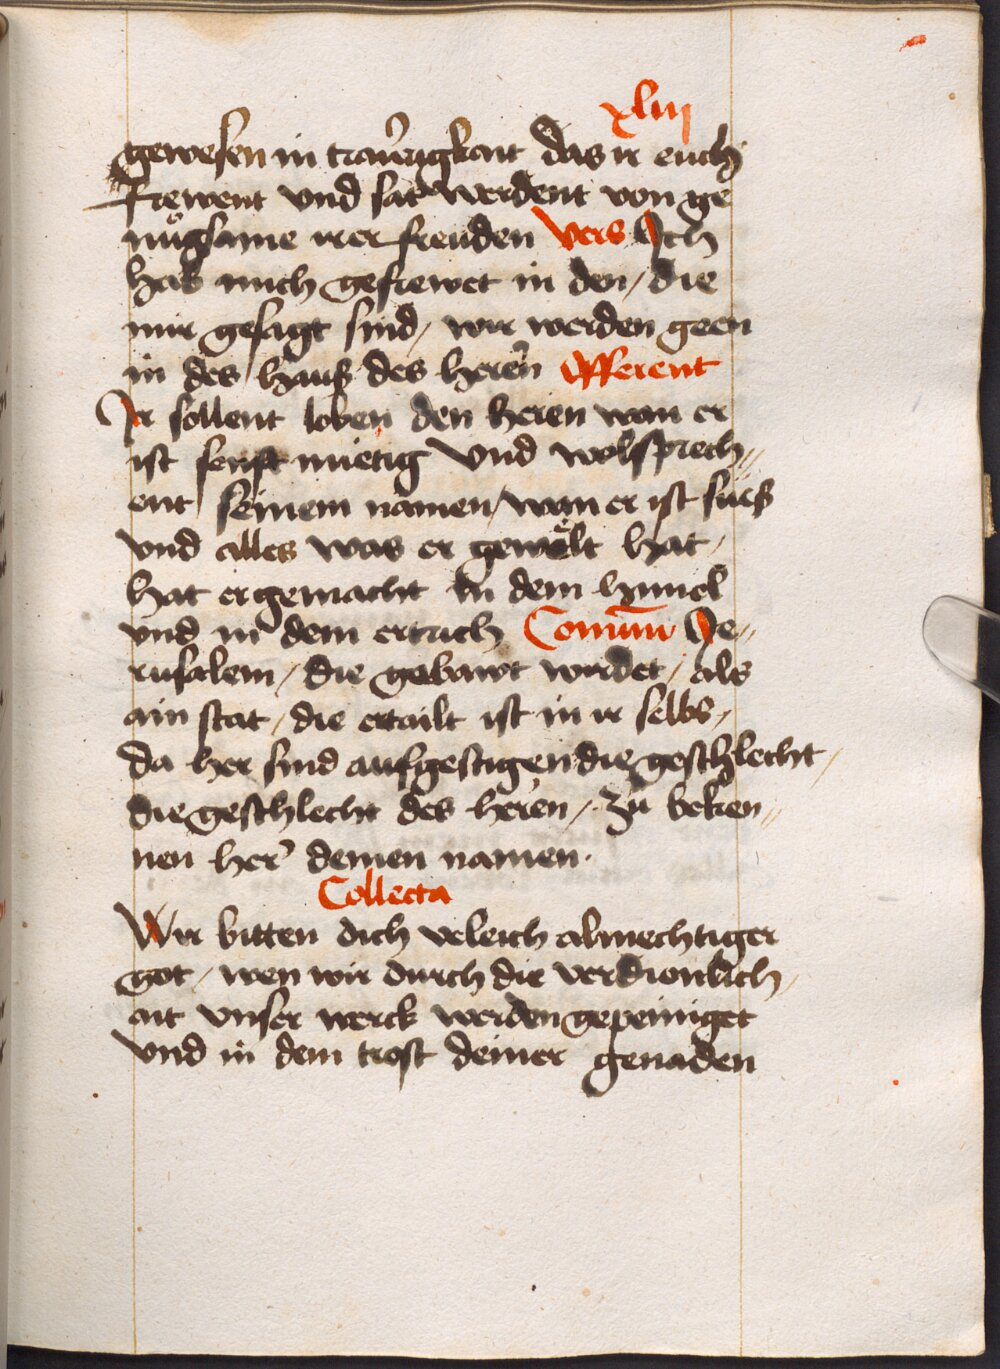 xliij
gewesen in traurigkait das ir euch
frewent vnd sat werdent von ge
nu̍gsame irer freuden Vers Ich
hab mich gefrewet in den / die
mir gesagt sind / wir werden geen
in des hauß des heren̄ Offerent
Ir sollent loben den heren wan er
ist senft mietig Vnd wolsprech〃
ent seinem namen / wan er ist sueß
vnd alles was er gewe̍lt hat /
hat er gemacht in dem himel
vnd in dem ertrich Comūm Je〃
rusalem / die gebawt wirdet / als
ain stat / die ertailt ist in ir selbs /
da her sind aufgestigen die geschlecht /
die geschlecht des heren / Zu beken〃
nen her deinen namen .
Collecta
Wir bitten dich verleich almechtiger
got / wen wir durch die verdionlich /
ait vnser werck werden gepeiniget
vnd in dem trost deiner genaden